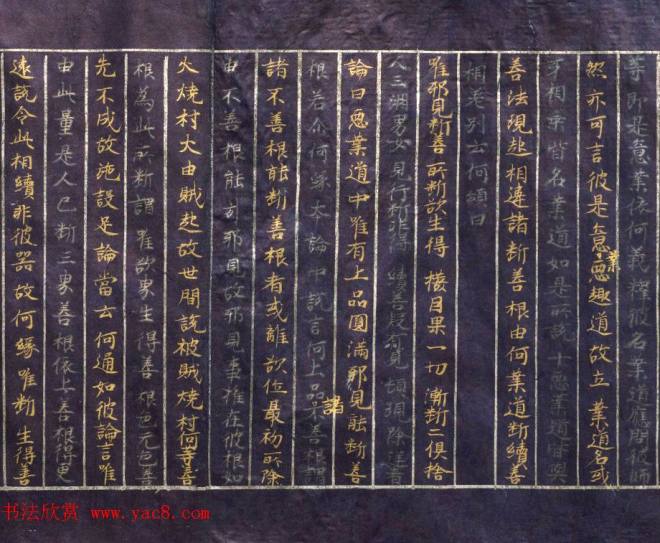 等即是意業依何義釋彼名業道應問彼師
然亦可言彼是意業惡趣道故立業道名或
互相乘皆名業道如是所說十惡業道皆與
善法現起相違諸斷善根由何業道斷續善
相差別云何頌曰
唯邪見斷善 所斷欲生得 撥因果一切 漸斷二俱捨
人三洲男女 見行斷非得 續善疑有見 頓現除逆者
論曰惡業道中唯有上品圓滿邪見能斷善
根若尒何緣本論中說云何上品諸不善根謂
諸不善根能斷善根者或離欲位最初所除
由不善根能引邪見故邪見事推在彼根如
火燒村火由賊起故世間說被賊燒村何等善
根為此所斷謂唯欲界生得善根色无色善
先不成故施設足論當云何通如彼論言唯
由此量是人已斷三界善根依上善根得更
遠說令此相續非彼器故何緣唯斷生得善
书法欣赏 www.yac8.com